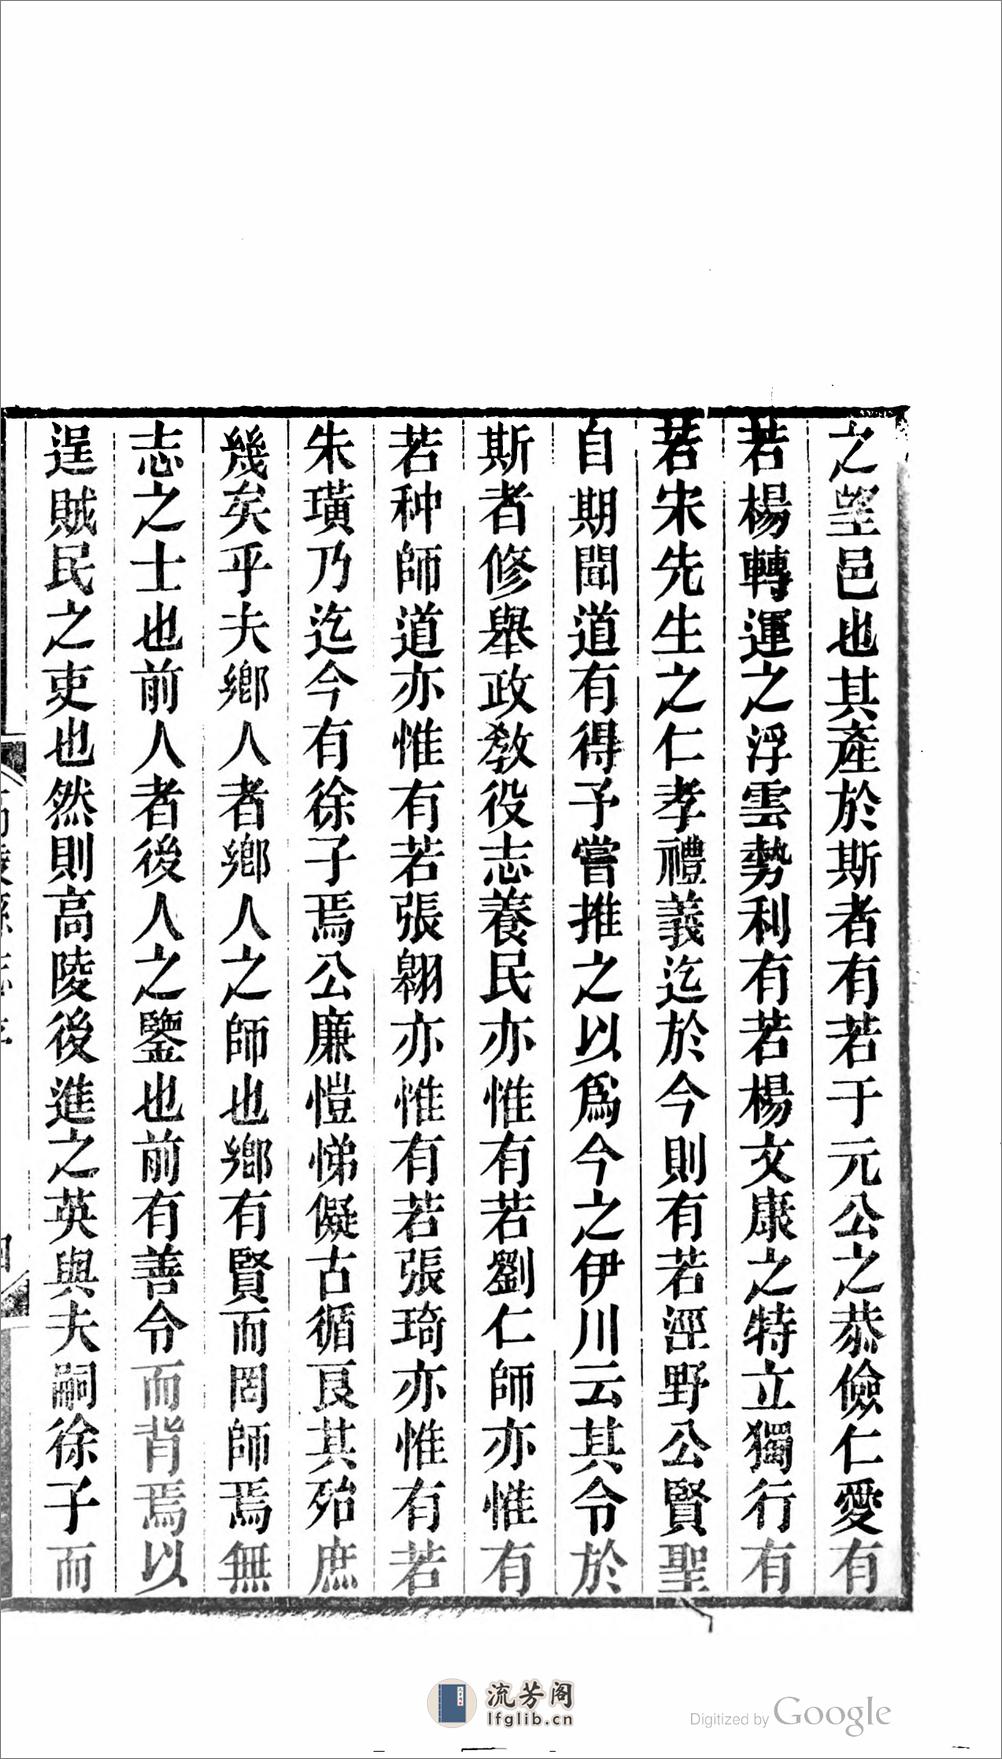 之望邑也其產於斯者有若于元公之恭儉仁愛有
若楊轉運之浮雲勢利有若楊文康之特立獨行有
若宋先生之仁孝禮義迄於今則有若涇野公賢聖
自期聞道有得予嘗推之以爲今之伊川云其令於
斯者修舉政敎役志養民亦惟有若劉仁師亦惟有
若种師道亦惟有若張翱亦惟有若張琦亦惟有若
朱璜乃迄今有徐子焉公廉愷悌儗古循良其殆庶
幾矣乎夫鄉人者鄉人之師也鄉有賢而罔師焉無
志之士也前人者後人之鑒也前有善令而背焉以
逞賊民之吏也然則高陵後進之英與夫嗣徐子而
流芳阁
lfglib.cn
Digitized by Google